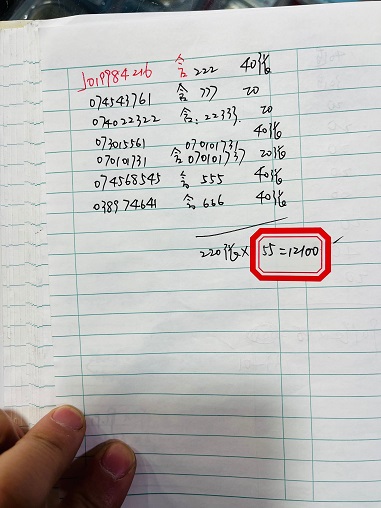 1019984216 含 222 40张
074543761 含 777 20
074022322 含: 22333. 20
073015561 070101731 40张
070101731 含 070101737 20张
074568545 含 555 40张
038974641 含 666 40张
220张 × 55 = 12100